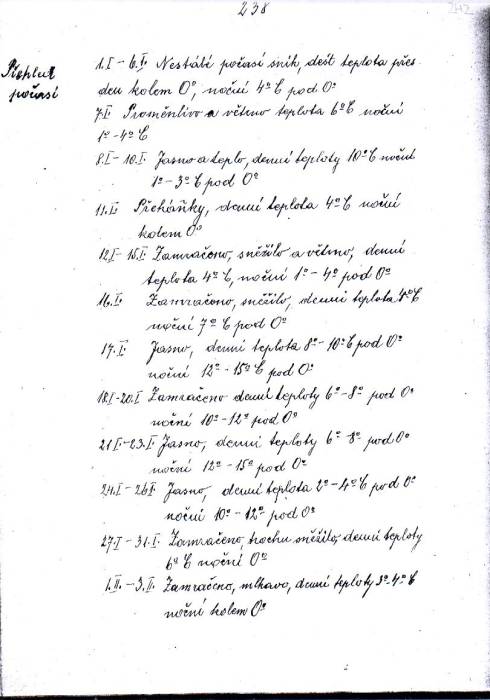 238
Přehled
počasí
1.I – 6.I. Nestálé počasí sníh, dešť teplota přes
den kolem 0°, noční 4°C pod 0°
7.I Proměnlivo a větrno teplota 6°C noční
1° – 4°C
8.I – 10.I. Jasno a teplo, denní teploty 10°C noční
1° – 3°C pod 0°
11.I. Přeháňky, denní teplota 4°C noční
kolem 0°
12.I – 15.I. Zamračeno, sněžilo a větrno, denní
teplota 4°C, noční 1° – 4° pod 0°
16.I. Zamračeno, sněžilo, denní teplota 4°C
noční 7°C pod 0°
17.I. Jasno, denní teplota 8° – 10°C pod 0°
noční 12° – 15°C pod 0°
18.I – 20.I Zamračeno denní teploty 6° – 8° pod 0°
noční 10° – 12° pod 0°
21.I – 23.I. Jasno, denní teploty 6° – 8° pod 0°
noční 12° – 15° pod 0°
24.I – 26.I. Jasno, denní teplota 2° – 4°C pod 0°
noční 10° – 12° pod 0°
27.I – 31.I. Zamračeno, trochu sněžilo, denní teploty
6°C noční 0°
1.II. – 3.II. Zamračeno, mlhavo, denní teploty 3° – 4°C
noční kolem 0°